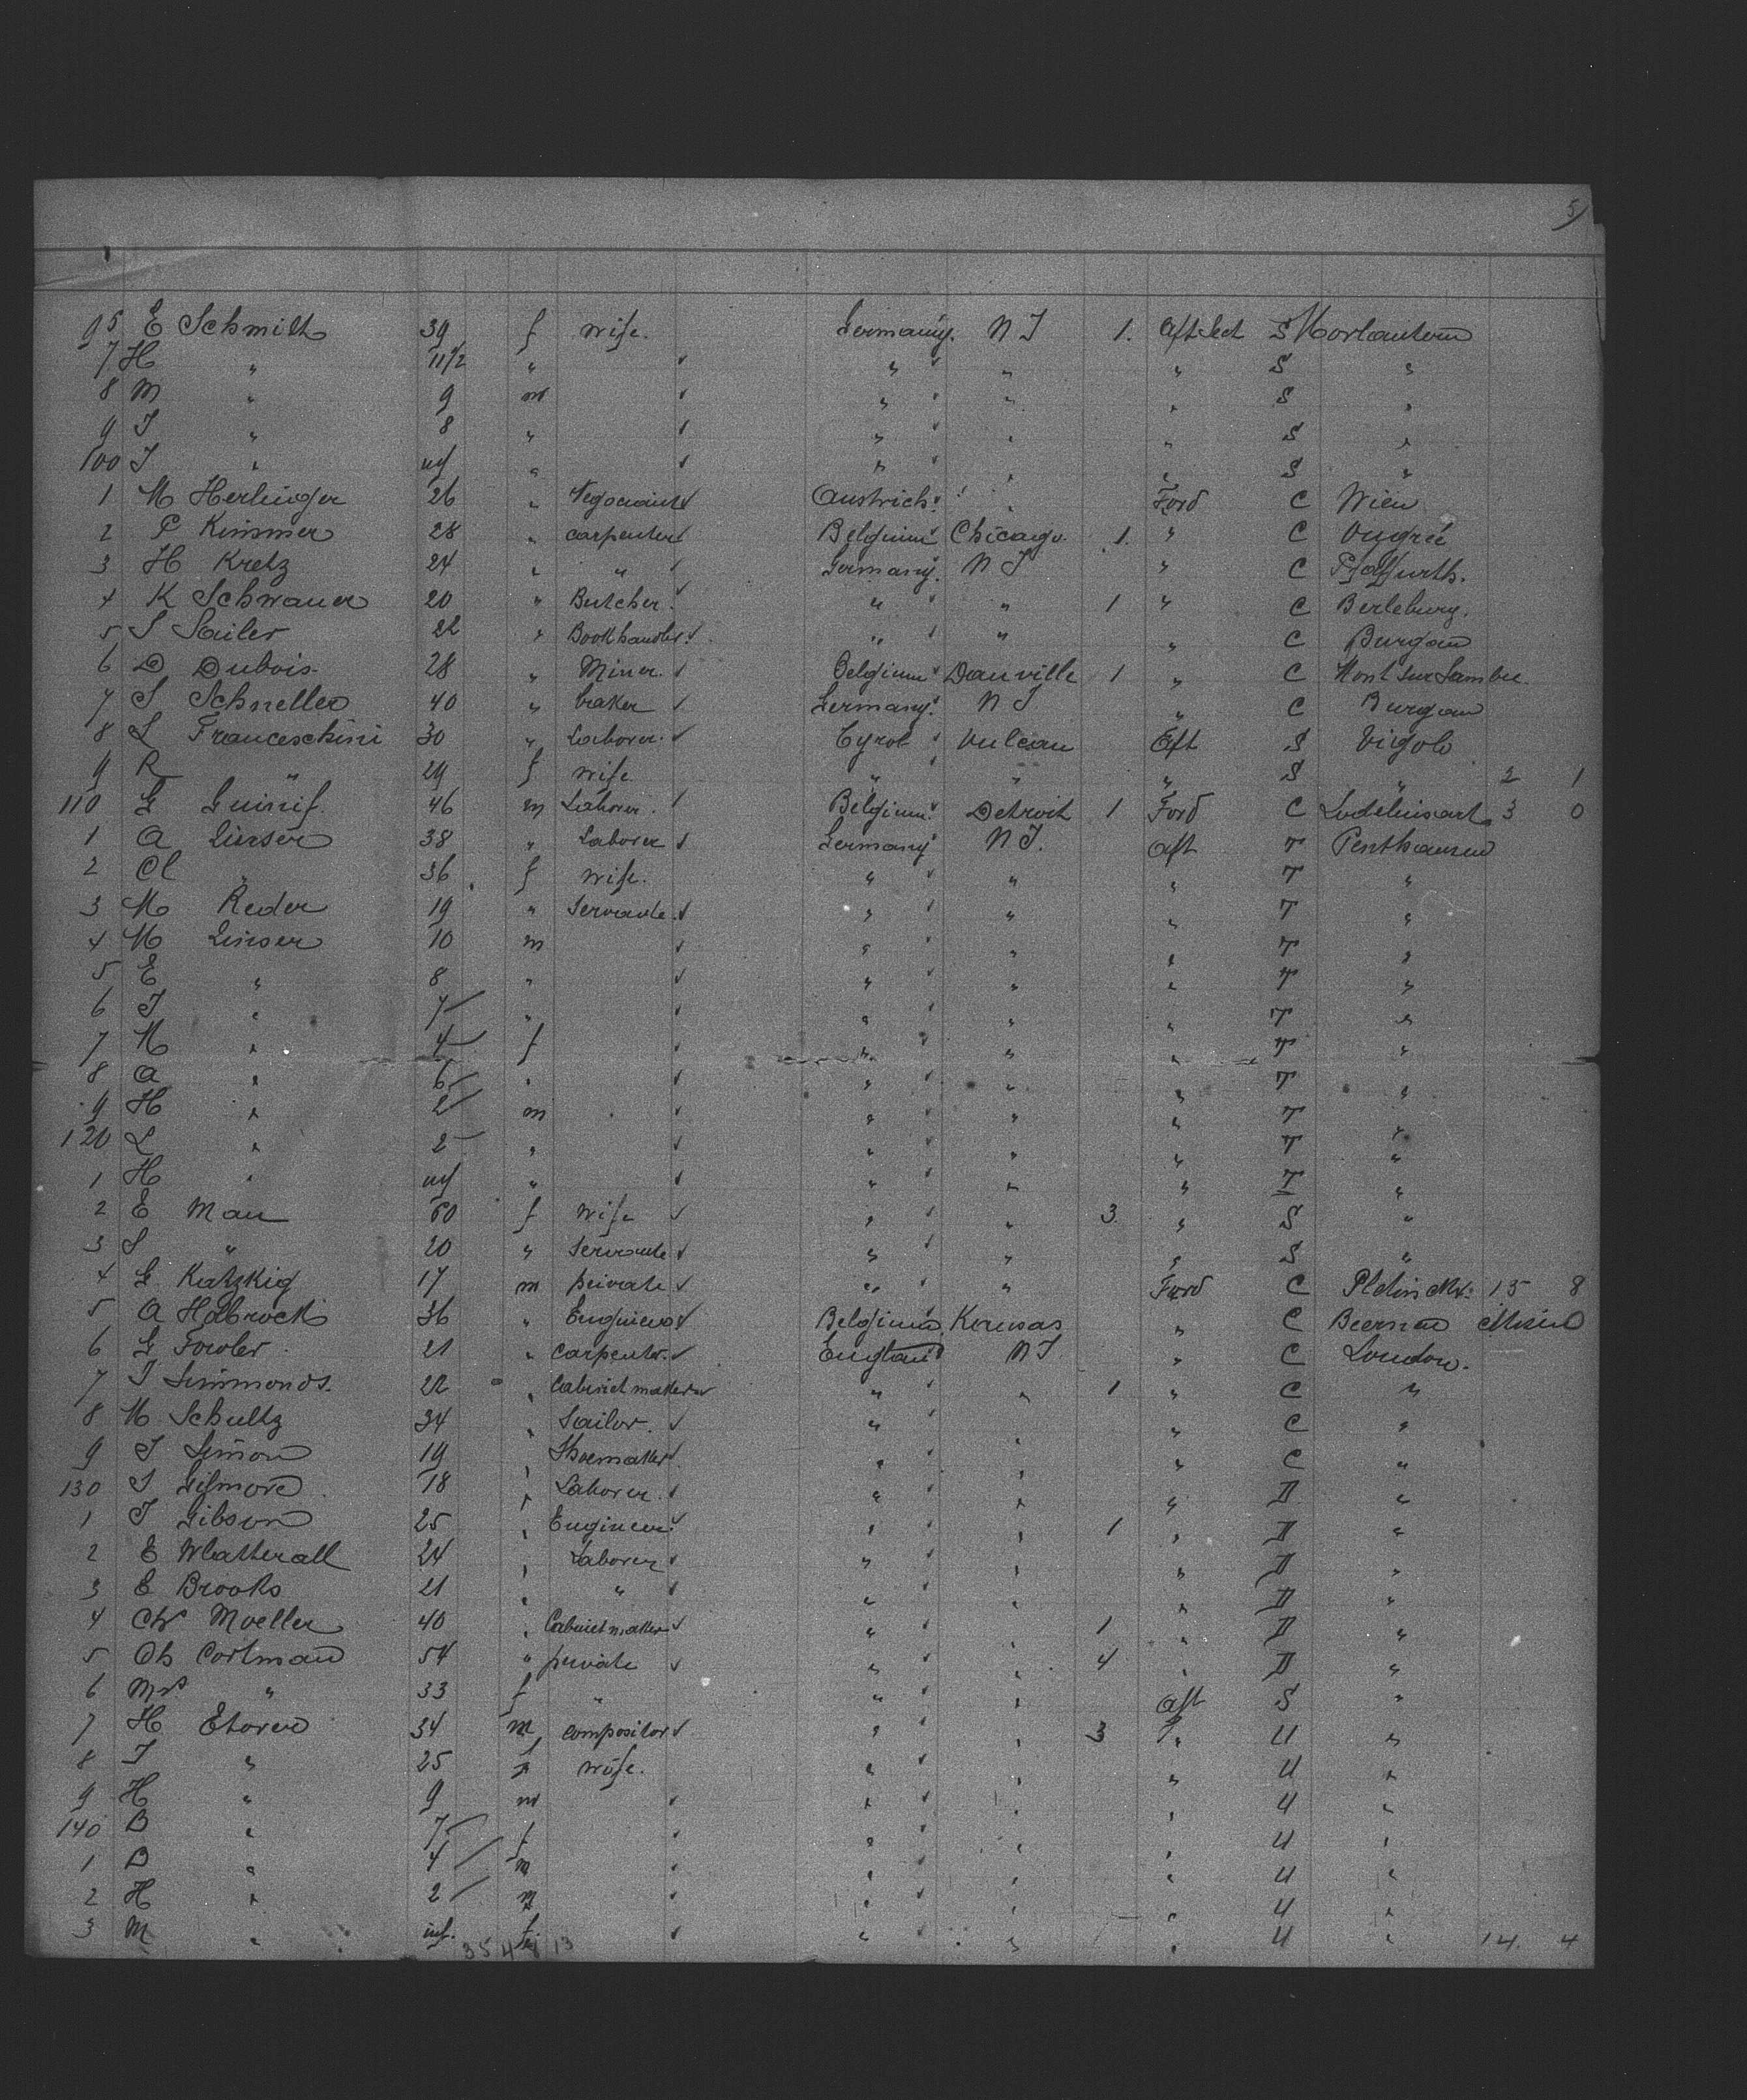 5)
95 E Schmitt 39 f wife. Germany. N J 1. Aft dect S
7 H " 11 1/2 " " " " S "
8 M " 9 m " " " S "
9 J " 8 " " " " S "
100 J " inf " " " " S "
1 M Herlinger 26 " Austrich. " Ford C Wien
2 P Kimmer 28 " carpenter Belgium Chicago 1. " C Ougreé
3 H Kretz 24 " " Germany. N J " C
4 K Schwauer 20 " Butcher. " " 1 " C Berleburg.
5 J Sailer 22 " " " " C Burgau
6 D Dubois. 28 " Miner. Belgium Danville 1 " C Mont sur Sambre.
7 J Schneller 40 " braker Germany. N J " C Burgau
8 L Franceschini 30 " Laborer. Tyrol Vulcan Aft S Vigolo
9 R " 29 f wife " " " S " 2 1
110 G 46 m Laborer. Belgium. Detroit 1 Ford C Lodelinsart 3 0
1 A Linser 38 " Laborer Germany N J. Aft T
2 Cl " 36 f wife. " " " T "
3 M Reder 19 " Servante " " " T "
4 M Linser 10 m " " " T "
5 E " 8 " " " " T "
6 J " 7 " " " " T "
7 M " 4 f " " " T "
8 A " 6 " " " " T "
9 H " 2 m " " " T "
120 L " 2 " " " " T "
1 H " inf " " " " T "
2 E Man 60 f wife " " 3. " S "
3 S " 20 " Servante " " " S "
4 G Katzkig 17 m private " " Ford C 15 8
5 A Holbrock 36 " Engineer Belgium Kansas " C
6 G Fowler 21 " Carpenter. England N J " C London.
7 J Simmonds. 22 " Cabinet maker " " 1 " C "
8 M Schultz 34 " Sailor. " " " C "
9 J Simon 19 " Shoemaker " " " C "
130 J Gilmore 18 " Laborer. " " " D "
1 J Gibson 25 " Engineer " " 1 " D "
2 E Whatterall 24 " Laborer " " " D "
3 E Brooks 21 " " " " " D "
4 Chr Moeller 40 " Cabinet maker " " 1 " D "
5 Ch Cortman 54 " private " " 4 " D "
6 Mrs " 33 f " " " Aft S "
7 H 34 m compositor " " 3 " U "
8 J " 25 f wife. " " " U "
9 H " 9 m " " " U "
140 B " 7 f " " " U "
1 B " 4 m " " " U "
2 H " 2 m " " " U "
3 M " inf. f " " " U " 14. 4